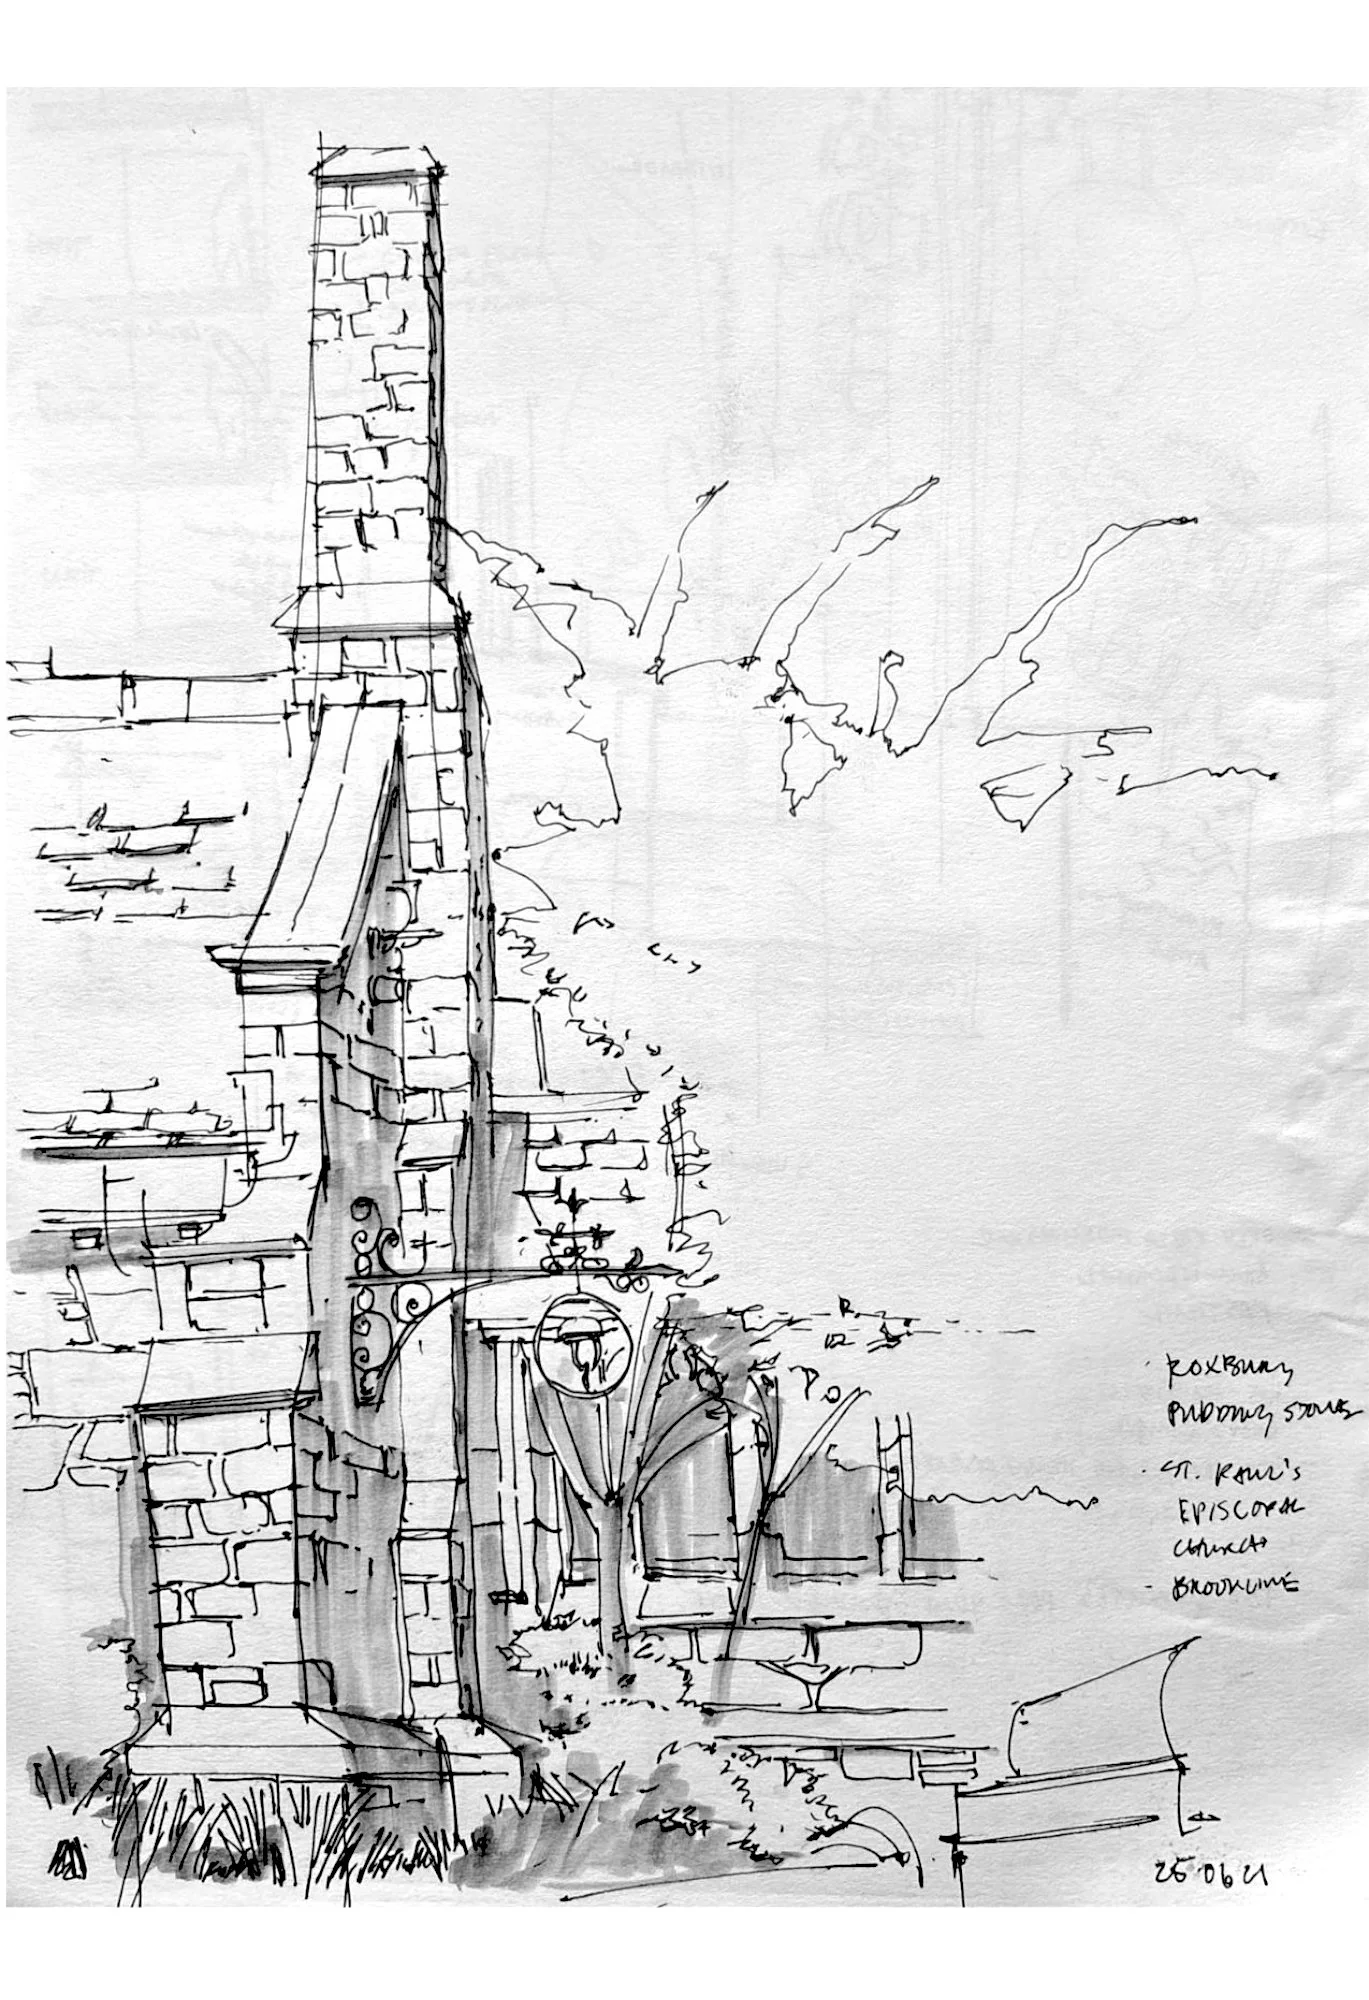 · ROXBURY
PUDDING STONE
· ST. PAUL'S
EPISCOPAL
CHURCH
- BROOKLINE
25 06 21